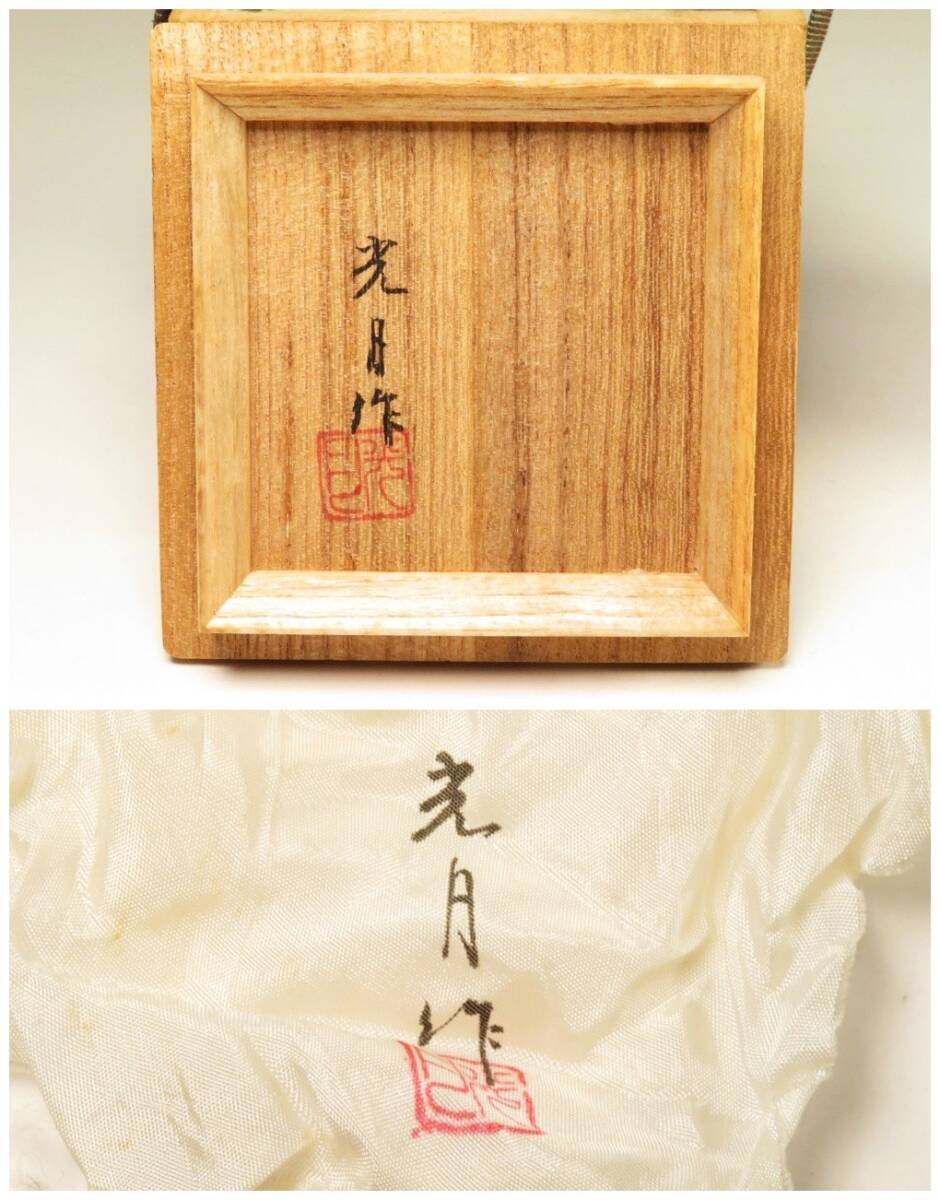 光月作
光月作